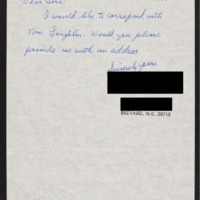 Dear Sirs:
I would like to correspond with
Tom Laughlin. Would you please
provide me with an address
Sincerely yours
BREVARD, N.C. 28712